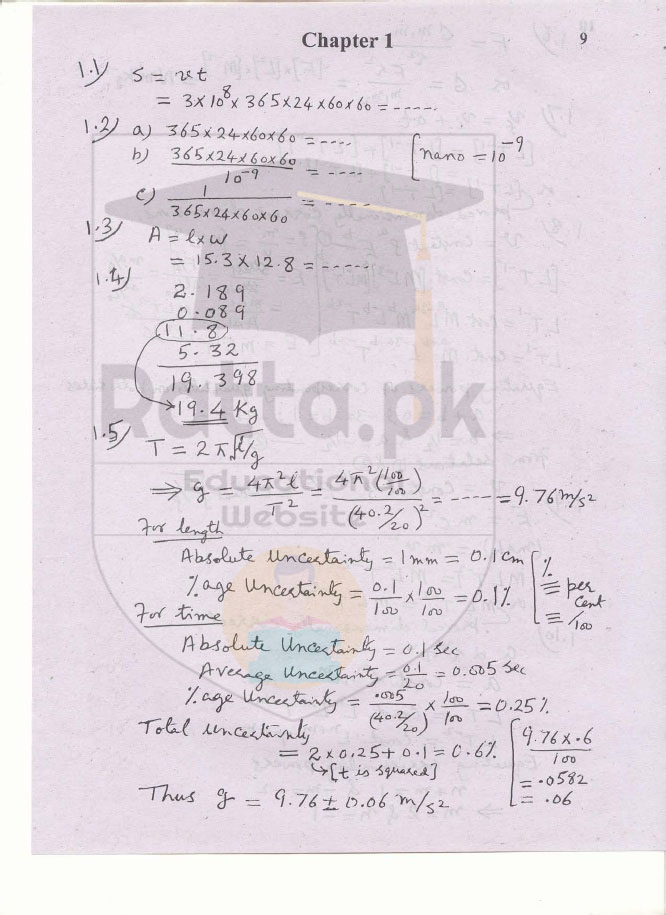 Chapter 1
9
1.1) S = vt
= 3×10⁸ × 365×24×60×60 = -----
1.2) a) 365×24×60×60 = ----
b) 365×24×60×60 / 10⁻⁹ = ----
[nano = 10⁻⁹
c) 1 / 365×24×60×60 = ----
1.3) A = l×w
= 15.3 × 12.8 = -----
1.4)
2.189
0.089
11.8
5.32
19.398
19.4 Kg
Ratta.pk
1.5) T = 2π√l/g
⇒ g = 4π²l / T² = 4π²(100/100) / (40.2/20)² = ---- = 9.76 m/s²
Educational
Website
For length
Absolute Uncertainty = 1mm = 0.1 cm
%age Uncertainty = 0.1/100 × 100/100 = 0.1%
[% ≡ per cent ≡ /100
For time
Absolute Uncertainty = 0.1 sec
Average Uncertainty = 0.1/20 = 0.005 sec
%age Uncertainty = .005/(40.2/20) × 100/100 = 0.25%
Total uncertainty
= 2 × 0.25 + 0.1 = 0.6%
↳[t is squared]
[9.76 × .6 / 100
= .0582
= .06
Thus g = 9.76 ± 0.06 m/s²